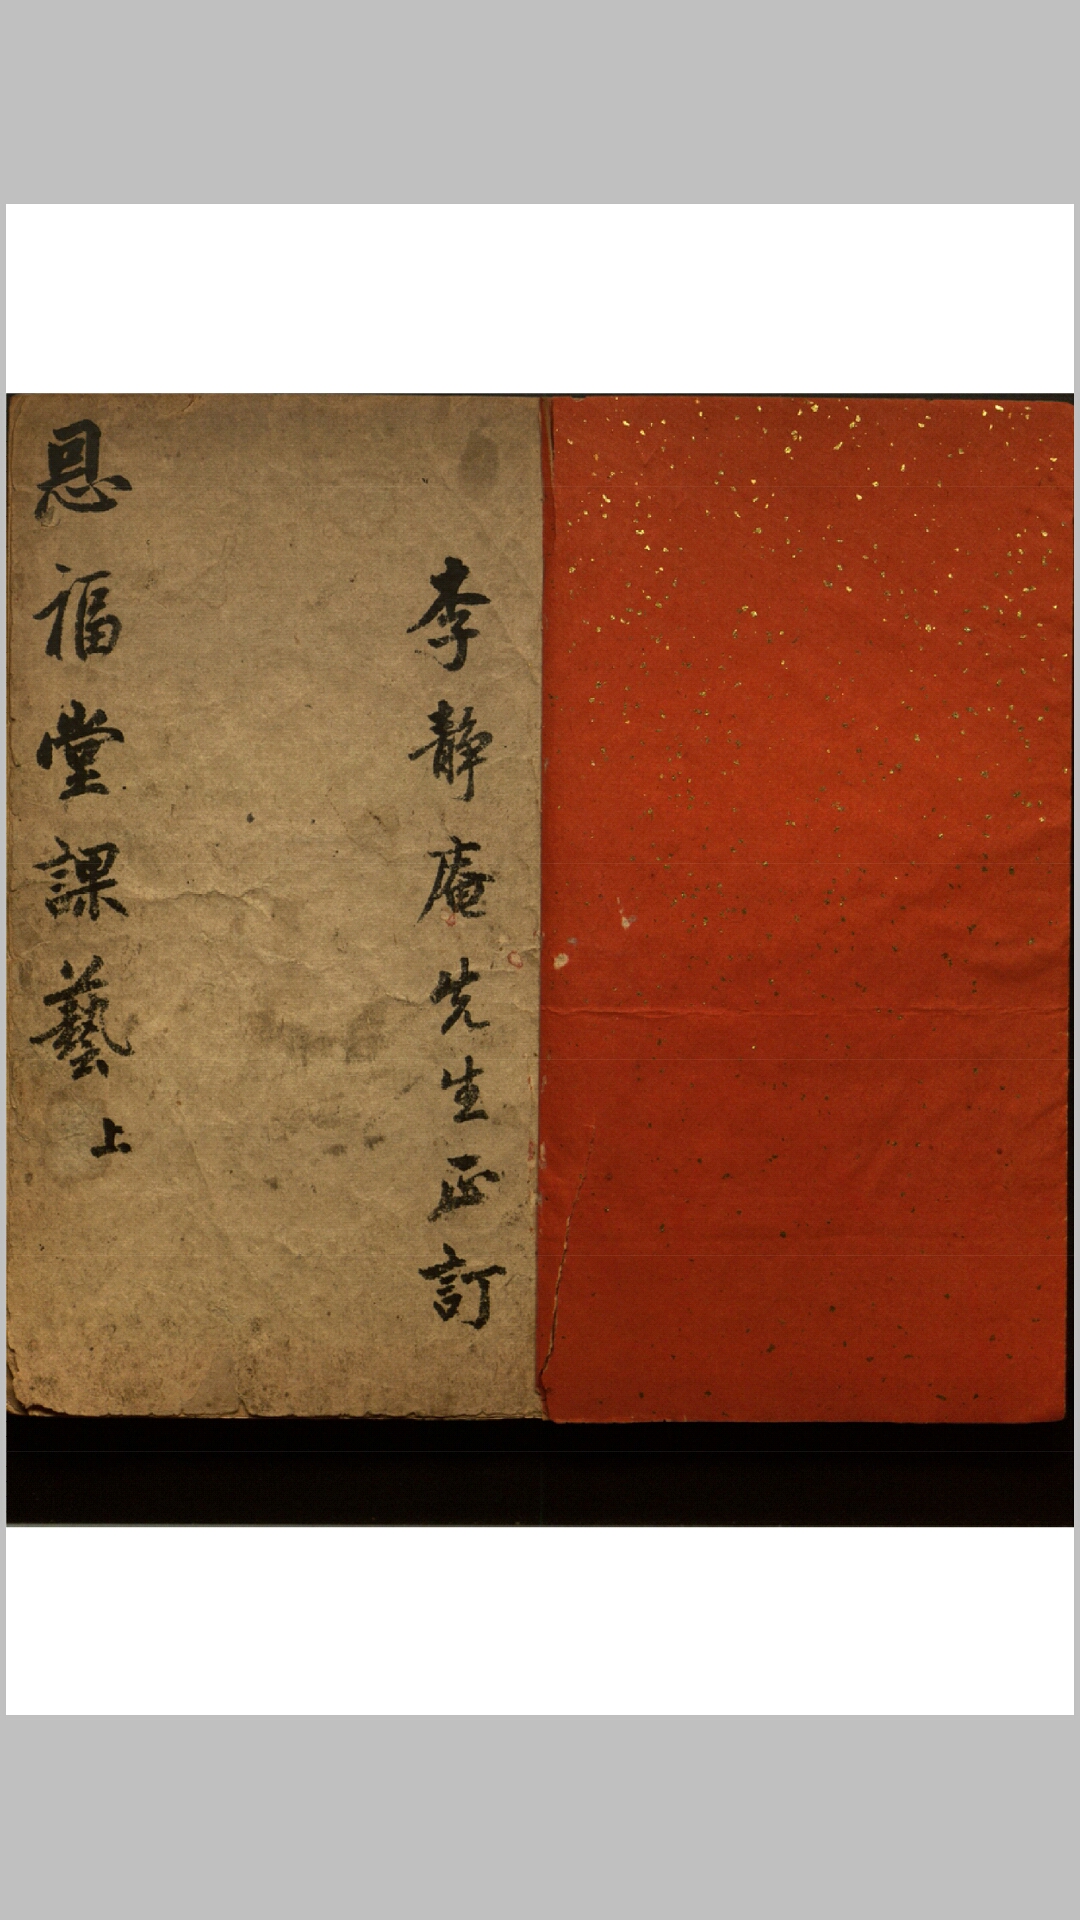 李靜庵先生正訂
恩福堂課藝 上